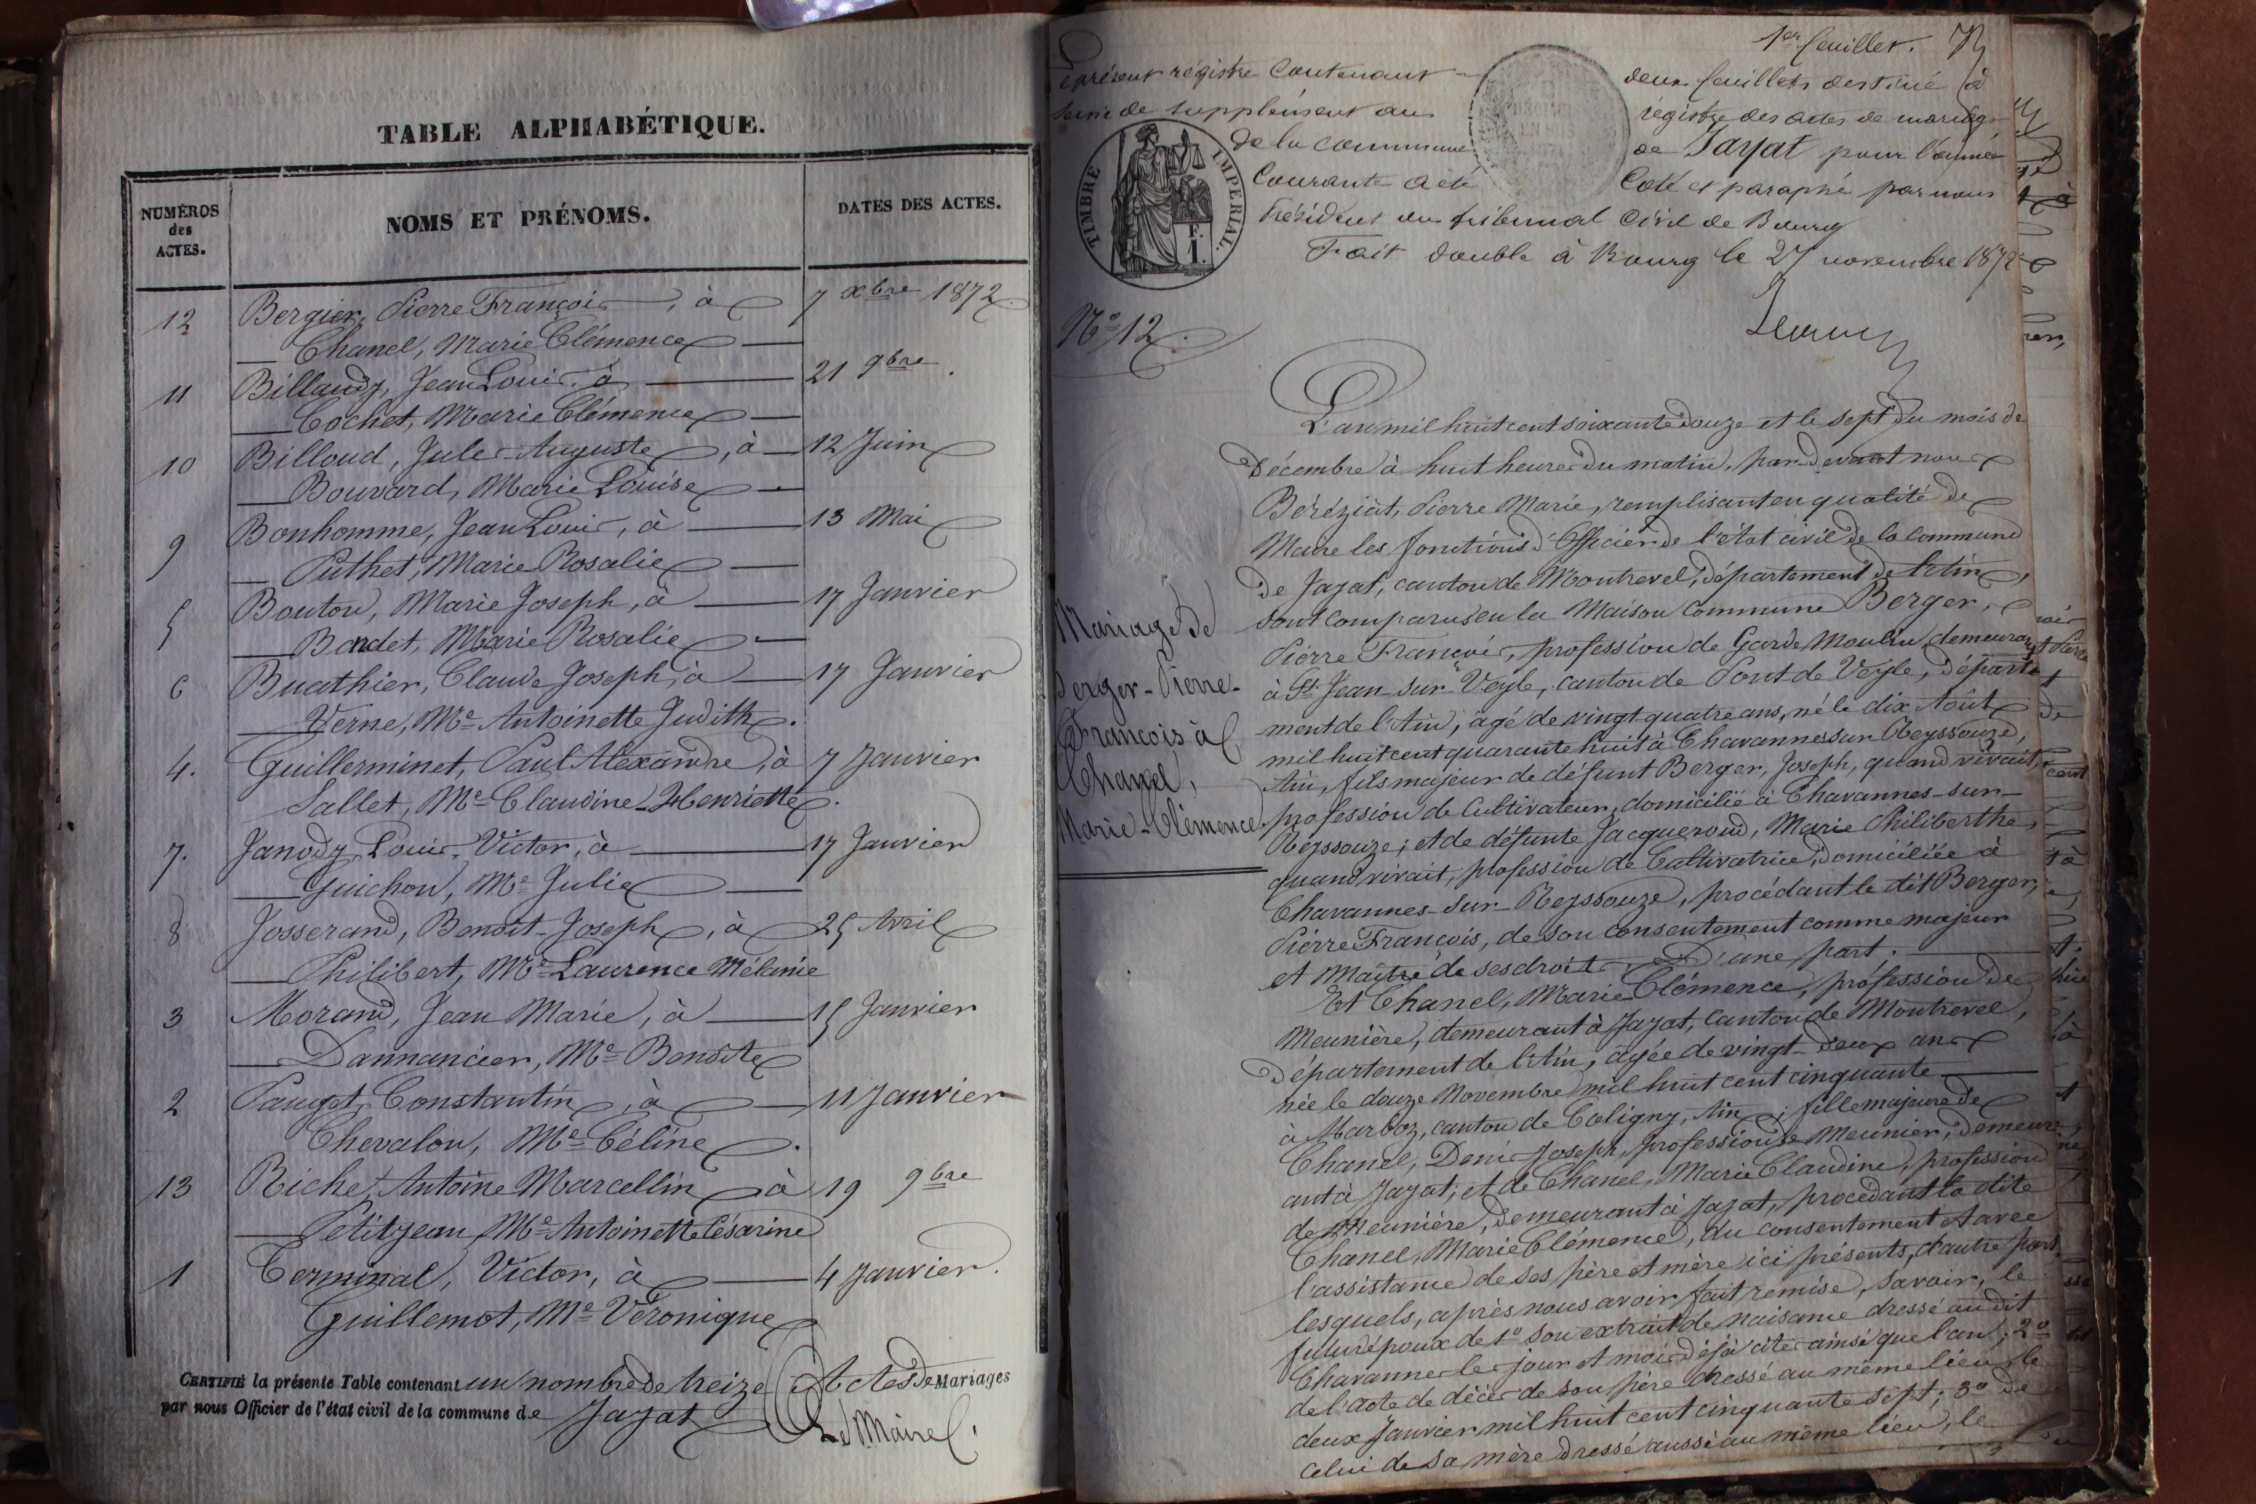 TABLE ALPHABÉTIQUE.
NUMÉROS
des
ACTES.
NOMS ET PRÉNOMS.
DATES DES ACTES.
12 Bergier, Pierre François, à 7 xbre 1872.
Chanel, Marie Clémence
11 Billaudy, Jean Louis à 21 9bre.
Cochet, Marie Clémence
10 Billoud, Jules Auguste, à 12 Juin
Bouvard, Marie Louise
9 Bonhomme, Jean Louis, à 13 Mai
Puthet, Marie Rosalie
5 Bouton, Marie Joseph, à 17 Janvier
Bondet, Marie Rosalie
6 Buathier, Claude Joseph, à 17 Janvier
Verne, Me Antoinette Judith.
4. Guillerminet, Paul Alexandre, à 7 Janvier
Sallet, Me Claudine Henriette.
7. Janody, Louis Victor, à 17 Janvier
Guichon, Me Julie
8 Josserand, Benoît-Joseph, à 25 Avril
Philibert, Me Laurence Mélanie
3 Morand, Jean Marie, à 15 Janvier
Dannancier, Me Benoîte
2 Pauget, Constantin, à 11 Janvier
Chevalon, Me Céline.
13 Riche, Antoine Marcellin à 19 9bre
Petitjean, Me Antoinette Césarine
1 Terminal, Victor, à 4 Janvier.
Guillemot, Me Véronique
CERTIFIÉ la présente Table contenant un nombre de treize Actes de Mariages
par nous Officier de l'état civil de la commune de Jayat
Le Maire
1er feuillet.
Le présent régistre contenant deux feuillets destiné à
servir de supplément au régistre des actes de mariage
de la commune de Jayat pour l'année
courante a été coté et paraphé par nous
Président du tribunal civil de Bourg
Fait double à Bourg le 27 novembre 1872
TIMBRE IMPÉRIAL.
F.
1.
No 12.
L'an mil huit cent soixante douze et le sept du mois de
Décembre à huit heures du matin, par devant nous
Béréziat, Pierre Marie, remplisant en qualité de
Maire les fonctions d'Officier de l'état civil de la commune
de Jayat, canton de Montrevel, département de l'Ain,
sont comparus en la Maison Commune Berger,
Pierre François, profession de Garde Moulin, demeurant
à St Jean sur Veyle, canton de Pont de Veyle, départe
ment de l'Ain, âgé de vingt quatre ans, né le dix Août
mil huit cent quarante huit à Chavannes sur Reyssouze,
Ain, fils majeur de défunt Berger, Joseph, quand vivait,
profession de Cultivateur, domicilié à Chavannes-sur-
Reyssouze; et de défunte Jacqueroud, Marie Philiberthe,
quand vivait, profession de Cultivatrice, domiciliée à
Chavannes-sur-Reyssouze, procédant le dit Berger,
Pierre François, de son consentement comme majeur
et Maître de ses droits D'une part.
Et Chanel, Marie Clémence, profession de
Meunière, demeurant à Jayat, canton de Montrevel,
département de l'Ain, âgée de vingt-deux ans
née le douze Novembre mil huit cent cinquante
à Marboz, canton de Coligny, Ain, fille majeure de
Chanel, Denis Joseph, profession de Meunier, demeur
ant à Jayat; et de Chanel, Marie Claudine, profession
de Meunière, demeurant à Jayat, procédant la dite
Chanel, Marie Clémence, du consentement et avec
l'assistance de ses père et mère ici présents, d'autre part.
lesquels, après nous avoir fait remise, savoir, le
futur époux de 1o son extrait de naisance dressé au dit
Chavanne le jour et mois déjà cités ainsi que l'an; 2o
de l'acte de décès de son père dressé au même lieu, le
deux Janvier mil huit cent cinquante sept; 3o de
celui de sa mère dressé aussi au même lieu, le
Mariage de
Berger-Pierre-
François à
Chanel,
Marie-Clémence.